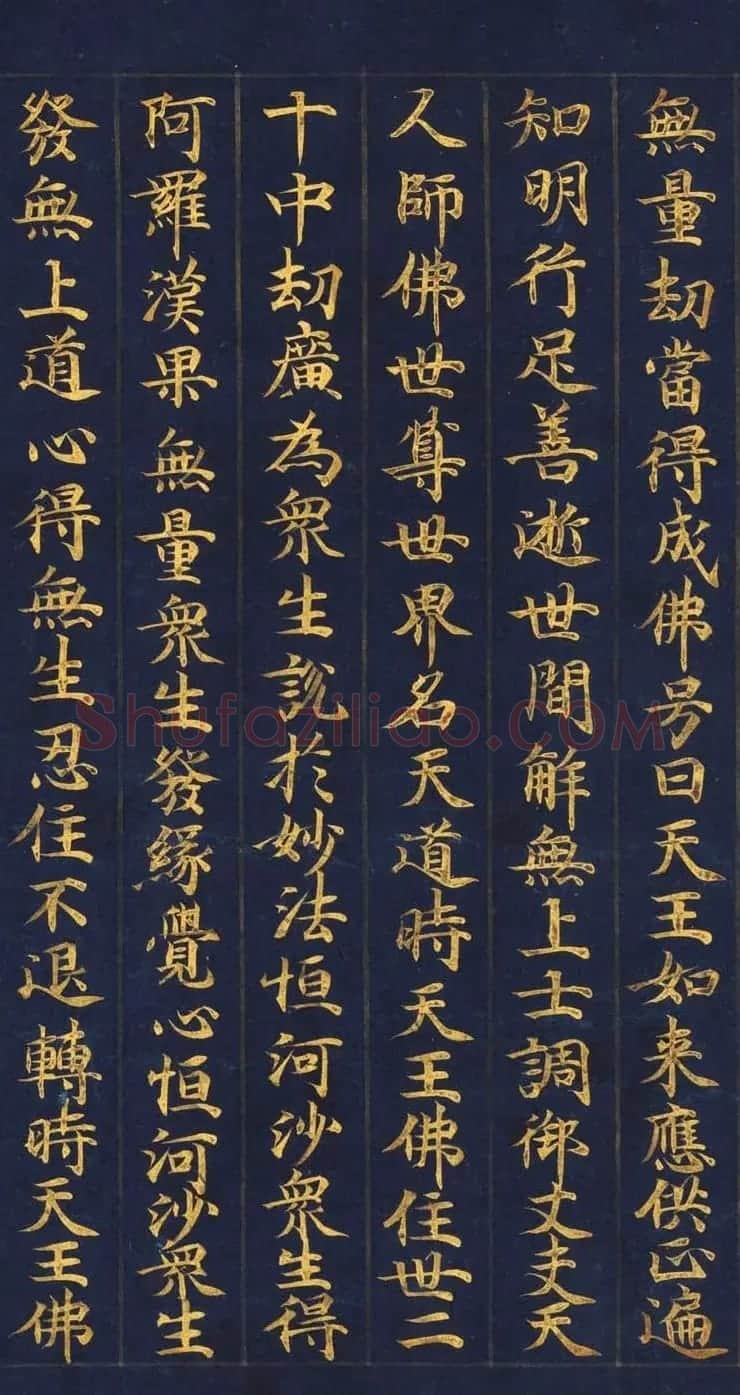 無量劫當得成佛号曰天王如来應供正遍
知明行足善逝世間解無上士調御丈夫天
人師佛世尊世界名天道時天王佛住世二
十中劫廣為衆生說於妙法恒河沙衆生得
阿羅漢果無量衆生發緣覺心恒河沙衆生
發無上道心得無生忍住不退轉時天王佛
Shufaziliao.COM